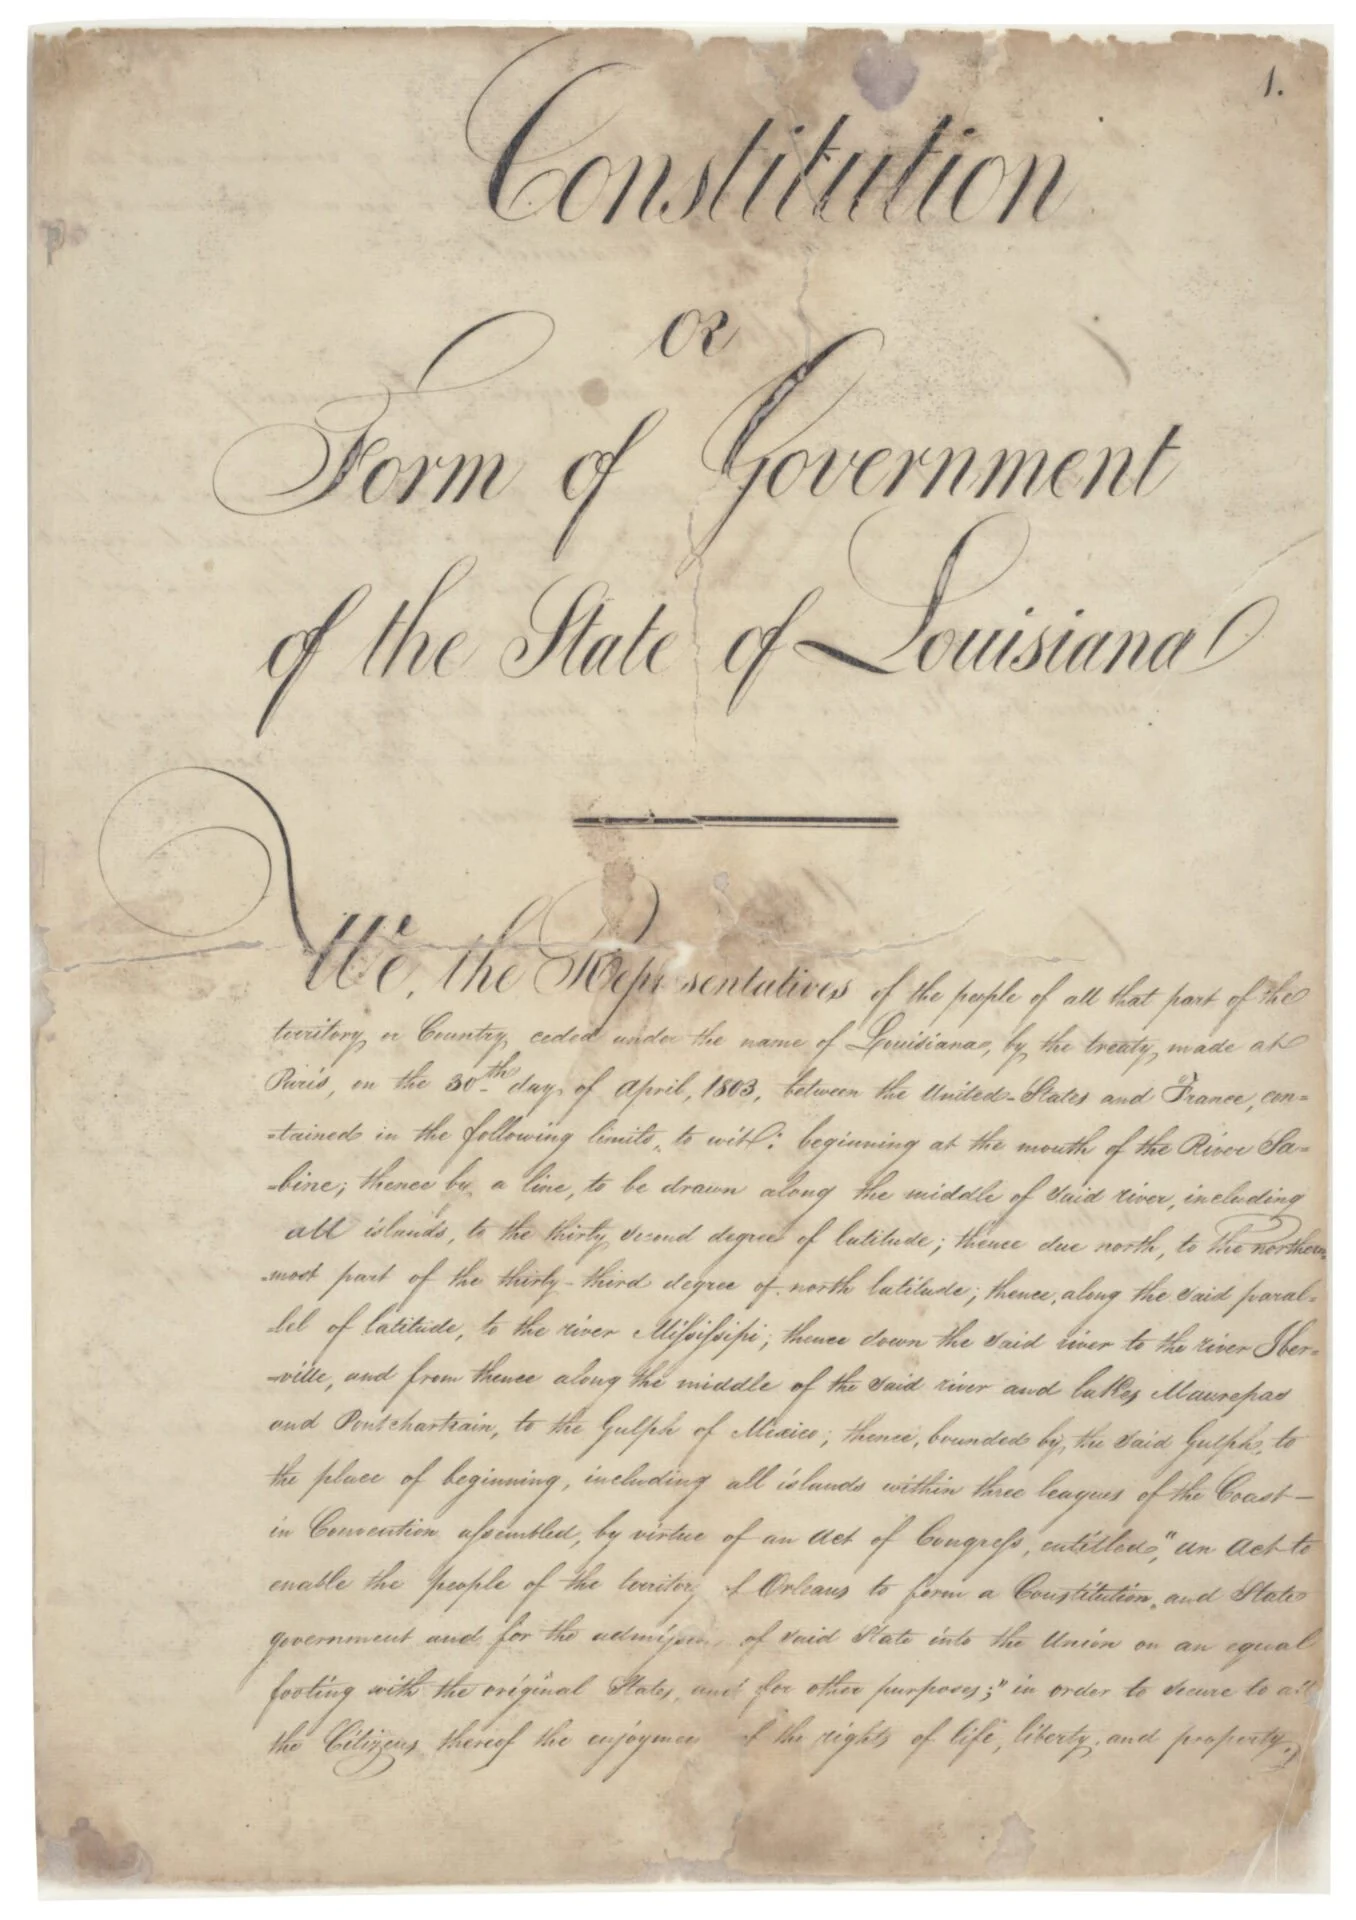 1.
Constitution
OR
Form of Government
of the State of Louisiana
We, the Representatives of the people of all that part of the
territory or Country ceded under the name of Louisiana, by the treaty made at
Paris, on the 30th day of April, 1803, between the United-States and France, con=
=tained in the following limits, to wit: beginning at the mouth of the River Sa=
=bine; thence by a line, to be drawn along the middle of said river, including
all islands, to the thirty second degree of latitude; thence due north, to the northern
=most part of the thirty-third degree of north latitude; thence, along the said paral=
=lel of latitude, to the river Missisipi; thence down the said river to the river Iber=
=ville, and from thence along the middle of the said river and lakes Maurepas
and Pontchartrain, to the Gulph of Mexico; thence, bounded by the said Gulph, to
the place of beginning, including all islands within three leagues of the Coast—
in Convention assembled, by virtue of an Act of Congress, entitled, "An Act to
enable the people of the territory of Orleans to form a Constitution, and State
government and for the admission of said State into the Union on an equal
footing with the original States, and for other purposes;" in order to secure to all
the Citizens thereof the enjoyment of the rights of life, liberty, and property,